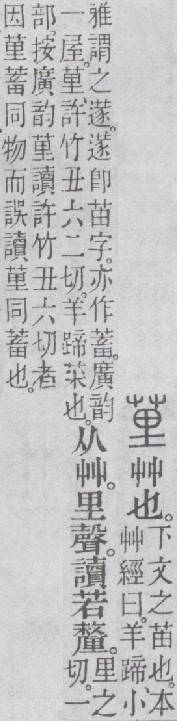 荲艸也。
下文之苗也。本
艸經曰。羊蹄。小
雅謂之蓫。蓫卽苗字。亦作蓄。廣韵
一屋。荲、許竹丑六二切。羊蹄菜也。
从艸。里聲。讀若釐。
里之
切。一
部。按廣韵荲讀許竹丑六切者、
因荲蓄同物而誤讀荲同蓄也。